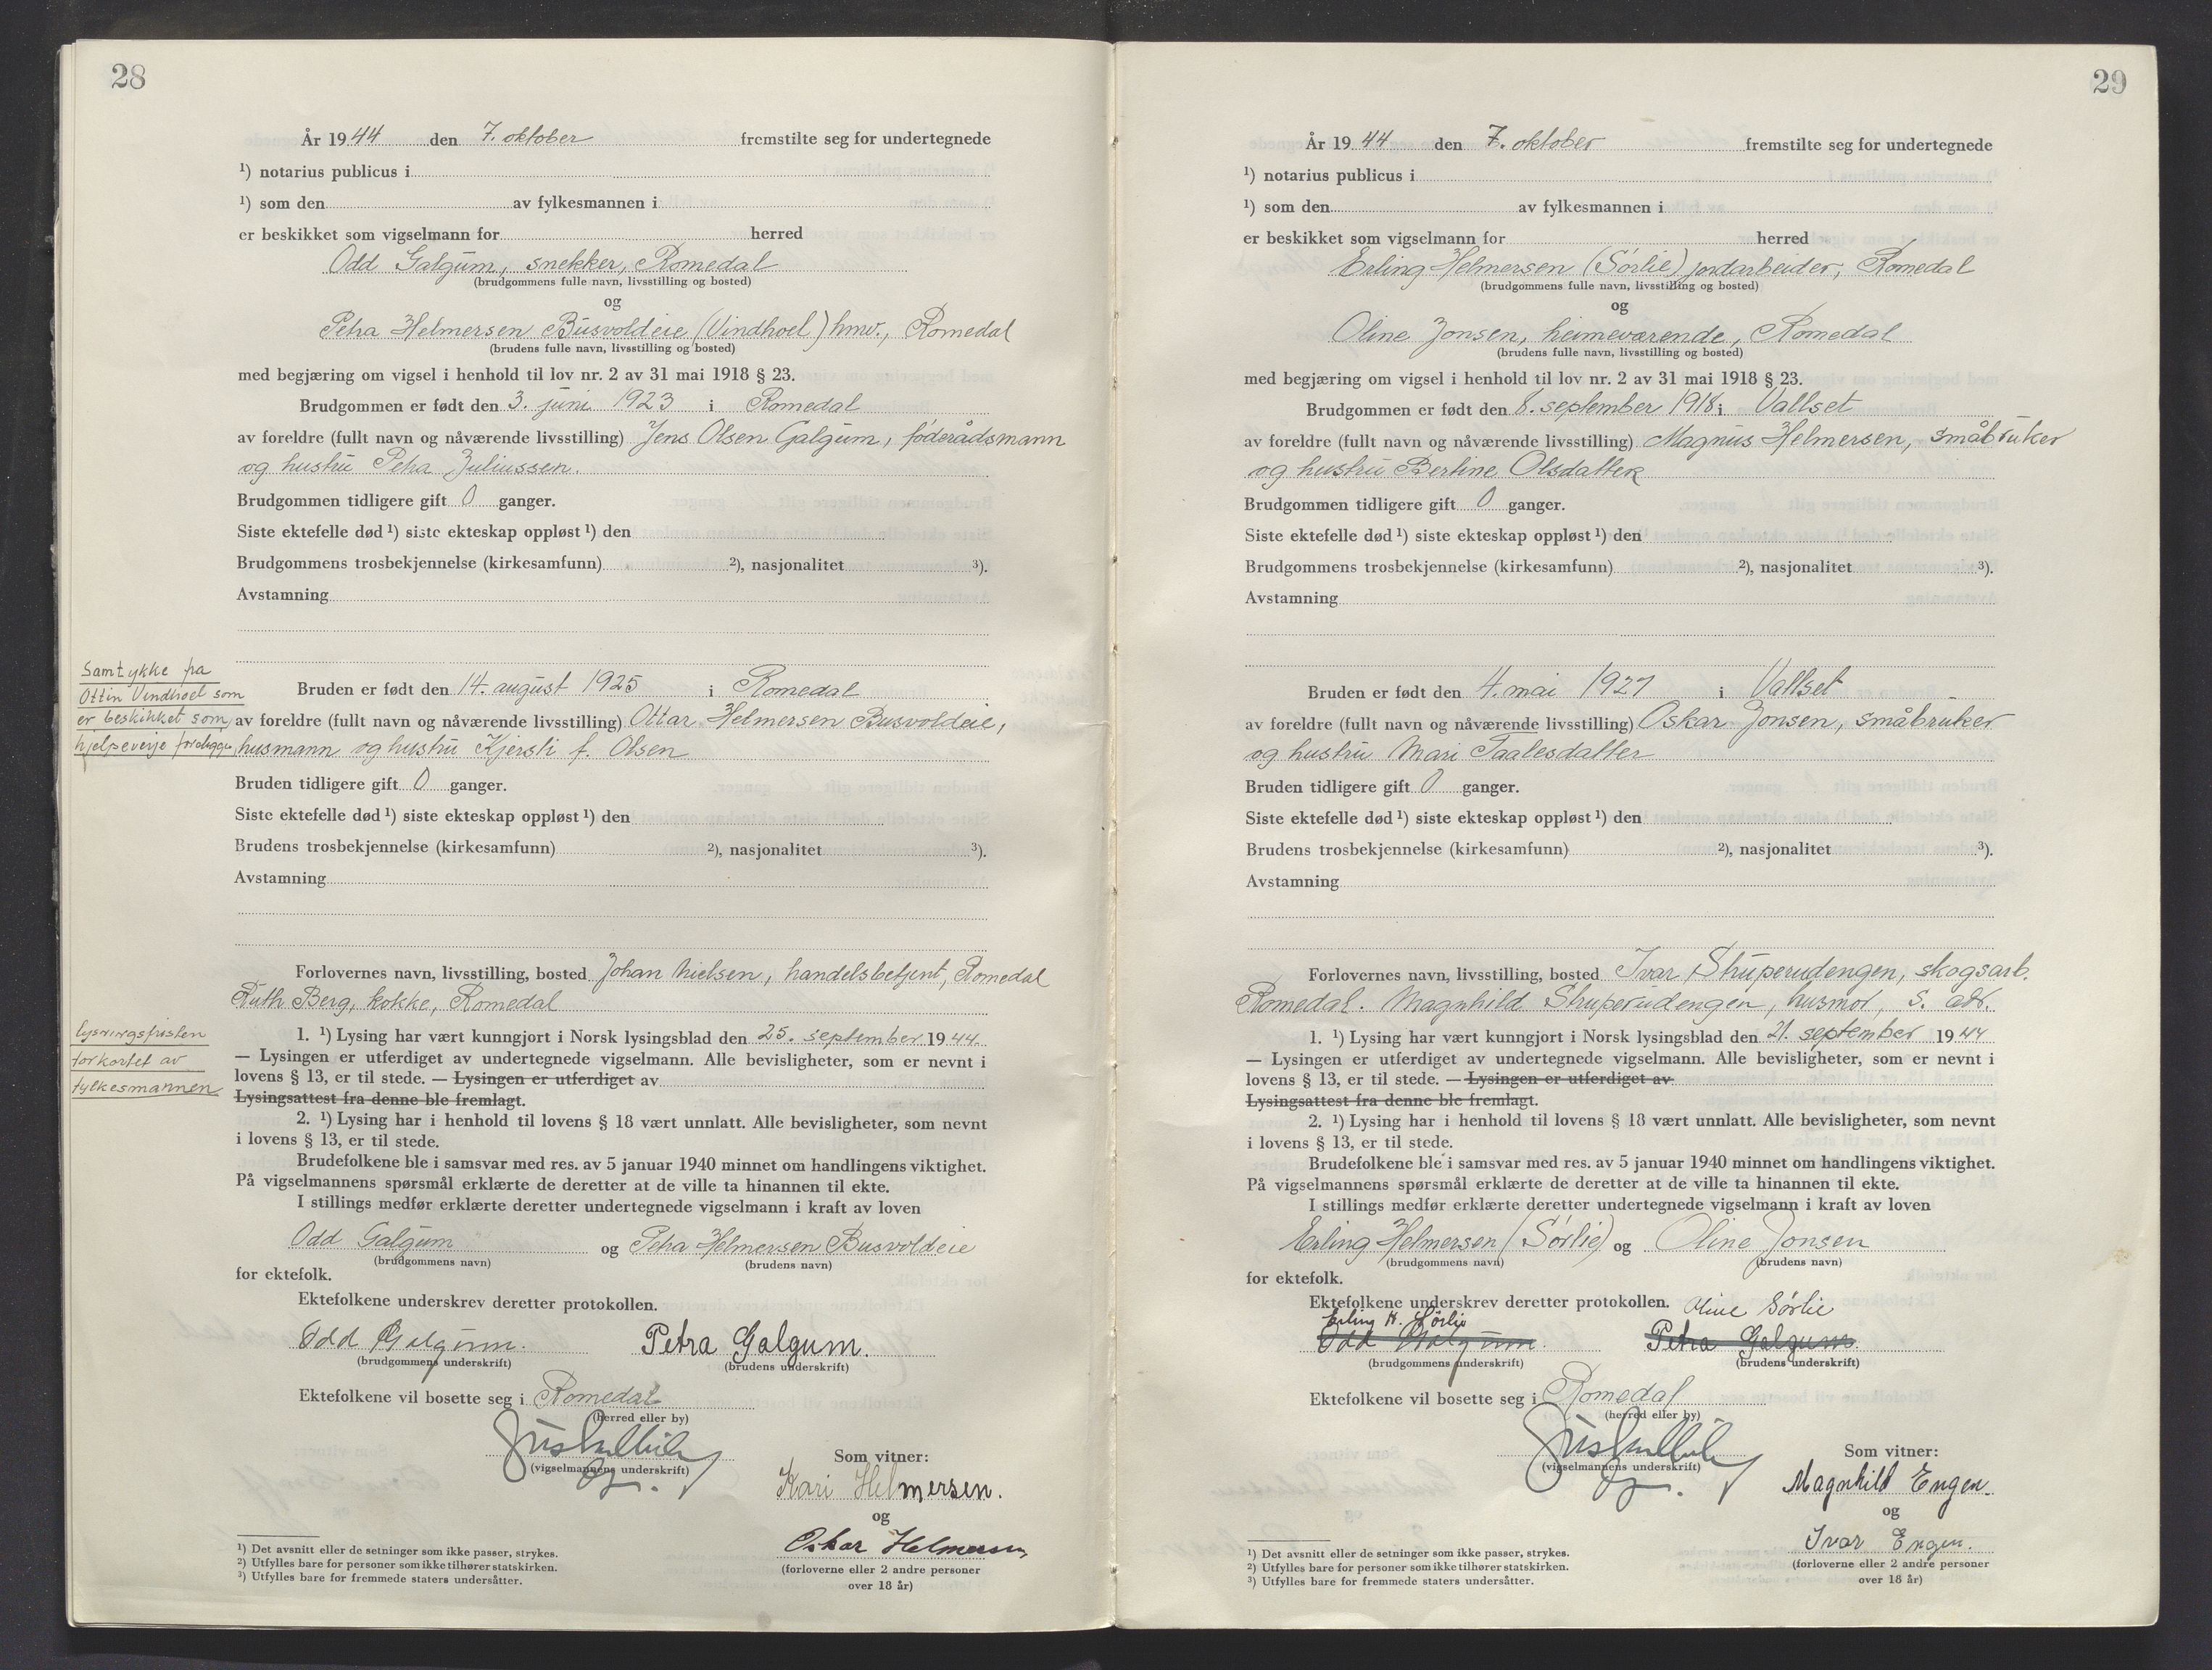 28
År 1944 den 7. oktober fremstilte seg for undertegnede
¹) notarius publicus i
¹) som den av fylkesmannen i
er beskikket som vigselmann for herred
Odd Galgum, snekker, Romedal
(brudgommens fulle navn, livsstilling og bosted)
og
Petra Helmersen Busvoldeie (Vindhoel) hmv., Romedal
(brudens fulle navn, livsstilling og bosted)
med begjæring om vigsel i henhold til lov nr. 2 av 31 mai 1918 § 23.
Brudgommen er født den 3. juni 1923 i Romedal
av foreldre (fullt navn og nåværende livsstilling) Jens Olsen Galgum, føderådsmann
og hustru Petra Juliussen.
Brudgommen tidligere gift 0 ganger.
Siste ektefelle død ¹) siste ekteskap oppløst ¹) den
Brudgommens trosbekjennelse (kirkesamfunn) ²), nasjonalitet ³).
Avstamning
Samtykke fra
Ottin Vindhoel som
er beskikket som
hjelpeverje foreligger
Bruden er født den 14. august 1925 i Romedal
av foreldre (fullt navn og nåværende livsstilling) Ottar Helmersen Busvoldeie,
husmann og hustru Kjersti f. Olsen
Bruden tidligere gift 0 ganger.
Siste ektefelle død ¹) siste ekteskap oppløst ¹) den
Brudens trosbekjennelse (kirkesamfunn) ²), nasjonalitet ³).
Avstamning
Forlovernes navn, livsstilling, bosted Johan Nielsen, handelsbetjent, Romedal
Ruth Berg, kokke, Romedal
lysningsfristen
forkortet av
fylkesmannen
1. ¹) Lysing har vært kunngjort i Norsk lysingsblad den 25. september 1944
— Lysingen er utferdiget av undertegnede vigselmann. Alle bevisligheter, som er nevnt i
lovens § 13, er til stede. — Lysingen er utferdiget av
Lysingsattest fra denne ble fremlagt.
2. ¹) Lysing har i henhold til lovens § 18 vært unnlatt. Alle bevisligheter, som nevnt
i lovens § 13, er til stede.
Brudefolkene ble i samsvar med res. av 5 januar 1940 minnet om handlingens viktighet.
På vigselmannens spørsmål erklærte de deretter at de ville ta hinannen til ekte.
I stillings medfør erklærte deretter undertegnede vigselmann i kraft av loven
Odd Galgum og Petra Helmersen Busvoldeie
(brudgommens navn) (brudens navn)
for ektefolk.
Ektefolkene underskrev deretter protokollen.
Odd Galgum. Petra Galgum.
(brudgommens underskrift) (brudens underskrift)
Ektefolkene vil bosette seg i Romedal
(herred eller by)
(vigselmannens underskrift)
Som vitner:
Kari Helmersen.
og
Oskar Helmersen
(forloverne eller 2 andre personer
over 18 år)
¹) Det avsnitt eller de setninger som ikke passer, strykes.
²) Utfylles bare for personer som ikke tilhører statskirken.
³) Utfylles bare for fremmede staters undersåtter.
29
År 1944 den 7. oktober fremstilte seg for undertegnede
¹) notarius publicus i
¹) som den av fylkesmannen i
er beskikket som vigselmann for herred
Erling Helmersen (Sørlie) jordarbeider, Romedal
(brudgommens fulle navn, livsstilling og bosted)
og
Oline Jonsen, heimeværende, Romedal
(brudens fulle navn, livsstilling og bosted)
med begjæring om vigsel i henhold til lov nr. 2 av 31 mai 1918 § 23.
Brudgommen er født den 8. september 1918 i Vallset
av foreldre (fullt navn og nåværende livsstilling) Magnus Helmersen, småbruker
og hustru Bertine Olsdatter
Brudgommen tidligere gift 0 ganger.
Siste ektefelle død ¹) siste ekteskap oppløst ¹) den
Brudgommens trosbekjennelse (kirkesamfunn) ²), nasjonalitet ³).
Avstamning
Bruden er født den 4. mai 1927 i Vallset
av foreldre (fullt navn og nåværende livsstilling) Oskar Jonsen, småbruker
og hustru Mari Taalesdatter
Bruden tidligere gift 0 ganger.
Siste ektefelle død ¹) siste ekteskap oppløst ¹) den
Brudens trosbekjennelse (kirkesamfunn) ²), nasjonalitet ³).
Avstamning
Forlovernes navn, livsstilling, bosted Ivar Struperudengen, skogsarb.
Romedal. Magnhild Struperudengen, husmor, s. adr.
1. ¹) Lysing har vært kunngjort i Norsk lysingsblad den 21. september 1944
— Lysingen er utferdiget av undertegnede vigselmann. Alle bevisligheter, som er nevnt i
lovens § 13, er til stede. — Lysingen er utferdiget av
Lysingsattest fra denne ble fremlagt.
2. ¹) Lysing har i henhold til lovens § 18 vært unnlatt. Alle bevisligheter, som nevnt
i lovens § 13, er til stede.
Brudefolkene ble i samsvar med res. av 5 januar 1940 minnet om handlingens viktighet.
På vigselmannens spørsmål erklærte de deretter at de ville ta hinannen til ekte.
I stillings medfør erklærte deretter undertegnede vigselmann i kraft av loven
Erling Helmersen (Sørlie) og Oline Jonsen
(brudgommens navn) (brudens navn)
for ektefolk.
Ektefolkene underskrev deretter protokollen.
Erling H. Sørlie Oline Sørlie
Odd Galgum. Petra Galgum.
(brudgommens underskrift) (brudens underskrift)
Ektefolkene vil bosette seg i Romedal
(herred eller by)
(vigselmannens underskrift)
Som vitner:
Magnhild Engen.
og
Ivar Engen.
(forloverne eller 2 andre personer
over 18 år)
¹) Det avsnitt eller de setninger som ikke passer, strykes.
²) Utfylles bare for personer som ikke tilhører statskirken.
³) Utfylles bare for fremmede staters undersåtter.